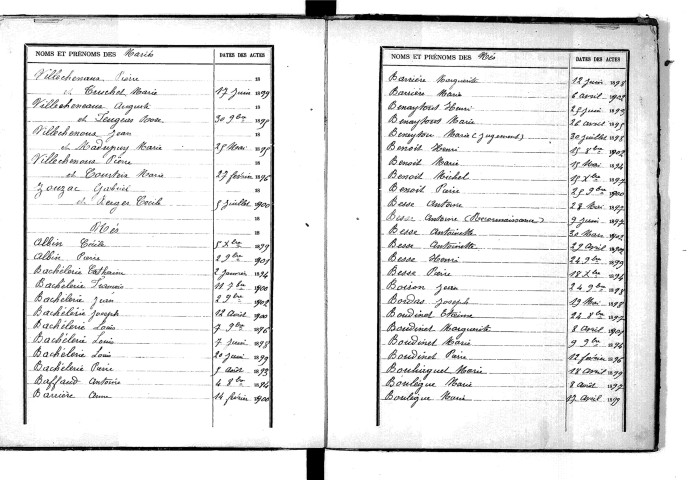 NOMS ET PRÉNOMS DES Mariés DATES DES ACTES
Villechenoux Pierre 18
et Truchet Marie 17 Juin 1899
Villecheneaux Auguste 18
et Rose 30 9bre 1895
Villechenoux Jean 18
et Madupuy Marie 25 Mai 1895
Villechenoux Pierre 18
et Courtois Marie 29 février 1896
Zouzac Gabriel 18
et Verger Cécile 5 juillet 1900
18
Nés 18
Albin Cécile 5 Xbre 1899
Albin Pierre 2 9bre 1901
Bachélerie Catherine 2 Janvier 1894
Bachélerie François 11 7bre 1900
Bachélerie Jean 2 9bre 1902
Bachélerie Joseph 12 Août 1900
Bachélerie Louis 7 9bre 1896
Bachélerie Louis 7 Juin 1898
Bachélerie Louis 20 Juin 1899
Bachélerie Pierre 5 août 1893
Baffaud Antoine 4 8bre 1894
Barrière Anne 14 février 1900
NOMS ET PRÉNOMS DES Nés DATES DES ACTES
Barrière Marguerite 12 Juin 1898
Barrière Marie 6 avril 1902
Benaytout Henri 25 Juin 1893
Benaytout Marie 26 avril 1895
Beneytou Marie (Jugement) 30 juillet 1898
Benoit Henri 15 8bre 1902
Benoit Marie 15 Mai 1894
Benoit Michel 15 Xbre 1897
Benoit Pierre 25 9bre 1900
Besse Antoine 28 Mai 1897
Besse Antoine (Reconnaissance) 9 Juin 1897
Besse Antoinette 30 Mars 1902
Besse Antoinette 29 Avril 1902
Besse Henri 24 9bre 1899
Besse Pierre 18 Xbre 1894
Boison Jean 24 9bre 1898
Bordas Joseph 19 Mai 1898
Boudinet Etienne 24 Xbre 1897
Boudinet Marguerite 8 Avril 1901
Boudinet Marie 9 9bre 1894
Boudinet Pierre 12 février 1896
Marie 18 Avril 1899
Boulègue Marie 8 Août 1897
Boulègue Marie 17 Avril 1899